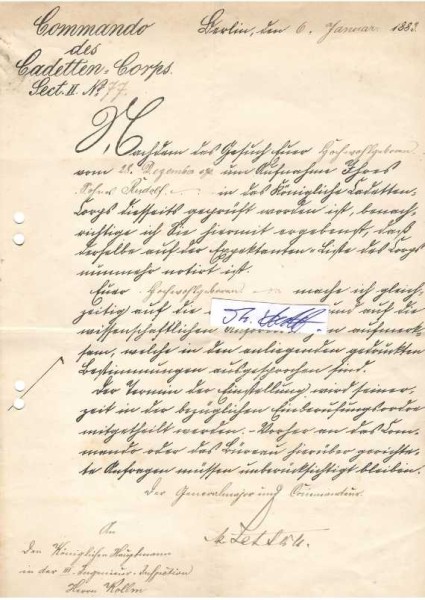 Commando
des
Cadetten-Corps.
Sect. II. No 77.
Berlin, den 6. Januar 1883.
Nachdem das Gesuch Euer Hochwohlgeboren
vom 28. Dezember um Aufnahme Ihres
Sohnes Rudolf in das Königliche Cadetten-
Corps diesseits geprüft worden ist, benach-
richtige ich Sie hiermit ergebenst, daß
derselbe auf der Expektanten-Liste des Corps
nunmehr notirt ist.
Euer Hochwohlgeboren mache ich gleich-
zeitig auf die und auf die
wissenschaftlichen aufmerk-
sam, welche in den anliegenden gedruckten
Bestimmungen ausgesprochen sind.
Der Termin der Einstellung wird seiner
Zeit in der bezüglichen Einberufungsordre
mitgetheilt werden. - Vorher an das Com-
mando oder das Büreau hierüber gerichte-
te Anfragen müssen unberücksichtigt bleiben.
Der Generalmajor und Commandeur.
An
den Königlichen Hauptmann
in der Ingenieur-Inspektion
Herrn